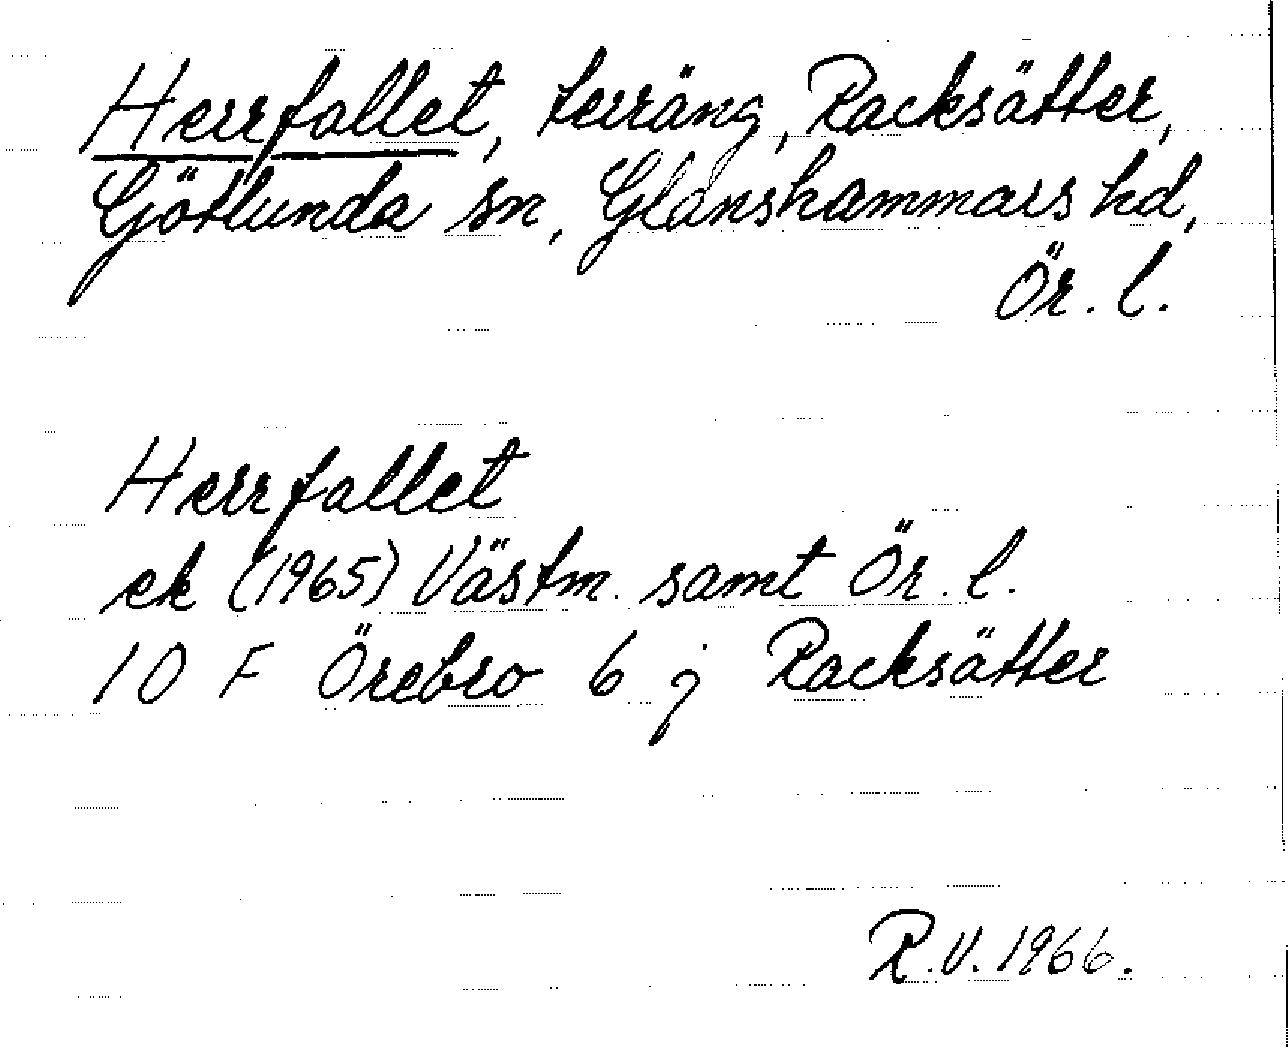 Herrfallet, terräng, Racksätter,
Götlunda sn, Glanshammars hd,
Ör. l.
Herrfallet
ek (1965) Västm. samt Ör. l.
10 F Örebro 6 j Racksätter
R.V. 1966.